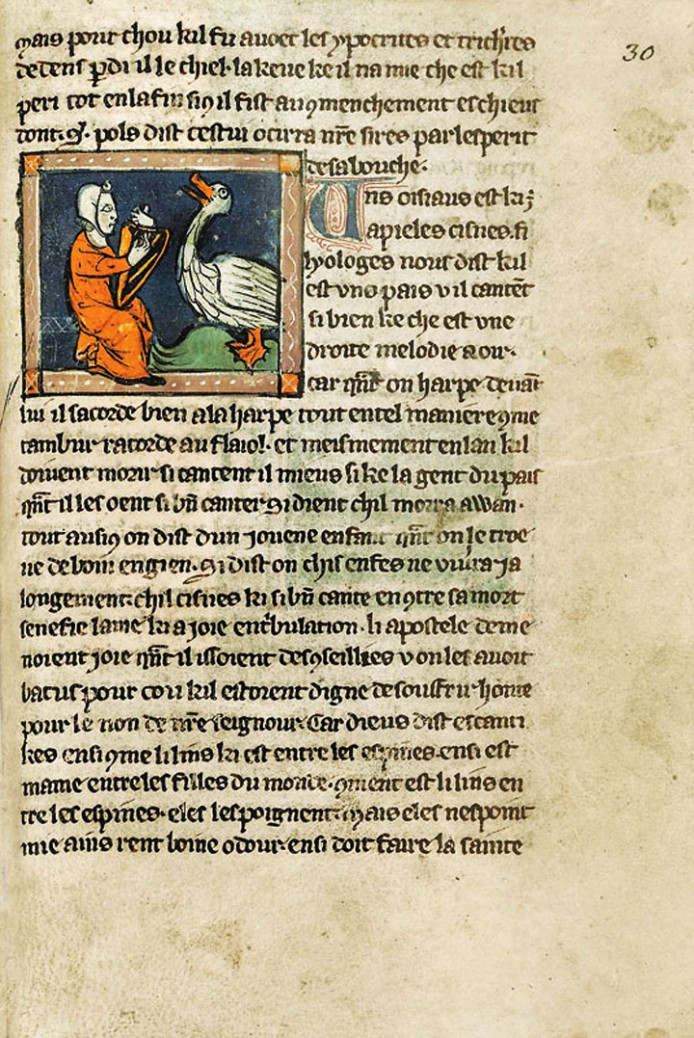 mais pour chou kil fu avoec les ypocrites et trichr̄es
dedens ꝑdi il le chiel· la keue ke il na mie che est kil
peri tot en la fin si ꝯ il fist au ꝯmenchement es chieus
dont· pols dist cestui ocirra nr̄e sires par lesperit
de sa bouche·
30
Uns oisiaus est ki
apieles cisnes. fi
syologes nous dist kil
est uns pais v il cantēt
si bien ke che est une
droite melodie a oir·
car qn̄t on harpe deuāt
lui il sacorde bien a la harpe tout en tel maniere ꝯme
tambur racorde au flaiol· et meismement en lan kil
doiuent morir si cantent il mieus si ke la gent du pais
qn̄t il les oent si bn̄ canter· si dient chil morra awan·
tout ausi ꝯ on dist dun jouene enfant qn̄t on le troe
ue de boin engien· si dist on chis enfes ne viura ja
longement· chil cisnes ki si bn̄ cante en ꝯtre sa mort
senefie lame ki a joie en tb̄ulation· li apostele deme
noient joie qn̄t il issoient des ꝯseillies v on les auoit
batus pour cou kil estoient digne de souffrir honte
pour le non de nr̄e seignour· Car dieus dist es canti
kes ensi ꝯme li lius ki est entre les espines· ensi est
mamie entre les filles du monde· ꝯment est li lius en
tre les espines· eles les poignent· mais eles nespoint
mie ains rent boine odour· ensi doit faire la sainte